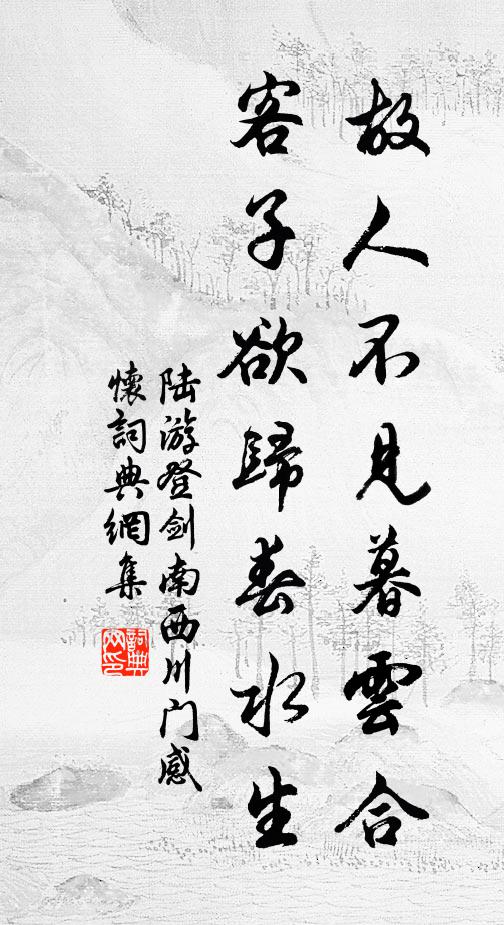 故人不見暮雲合
客子欲歸春水生
陆游登劍南西川门感
懷詞典網集
詞典網印